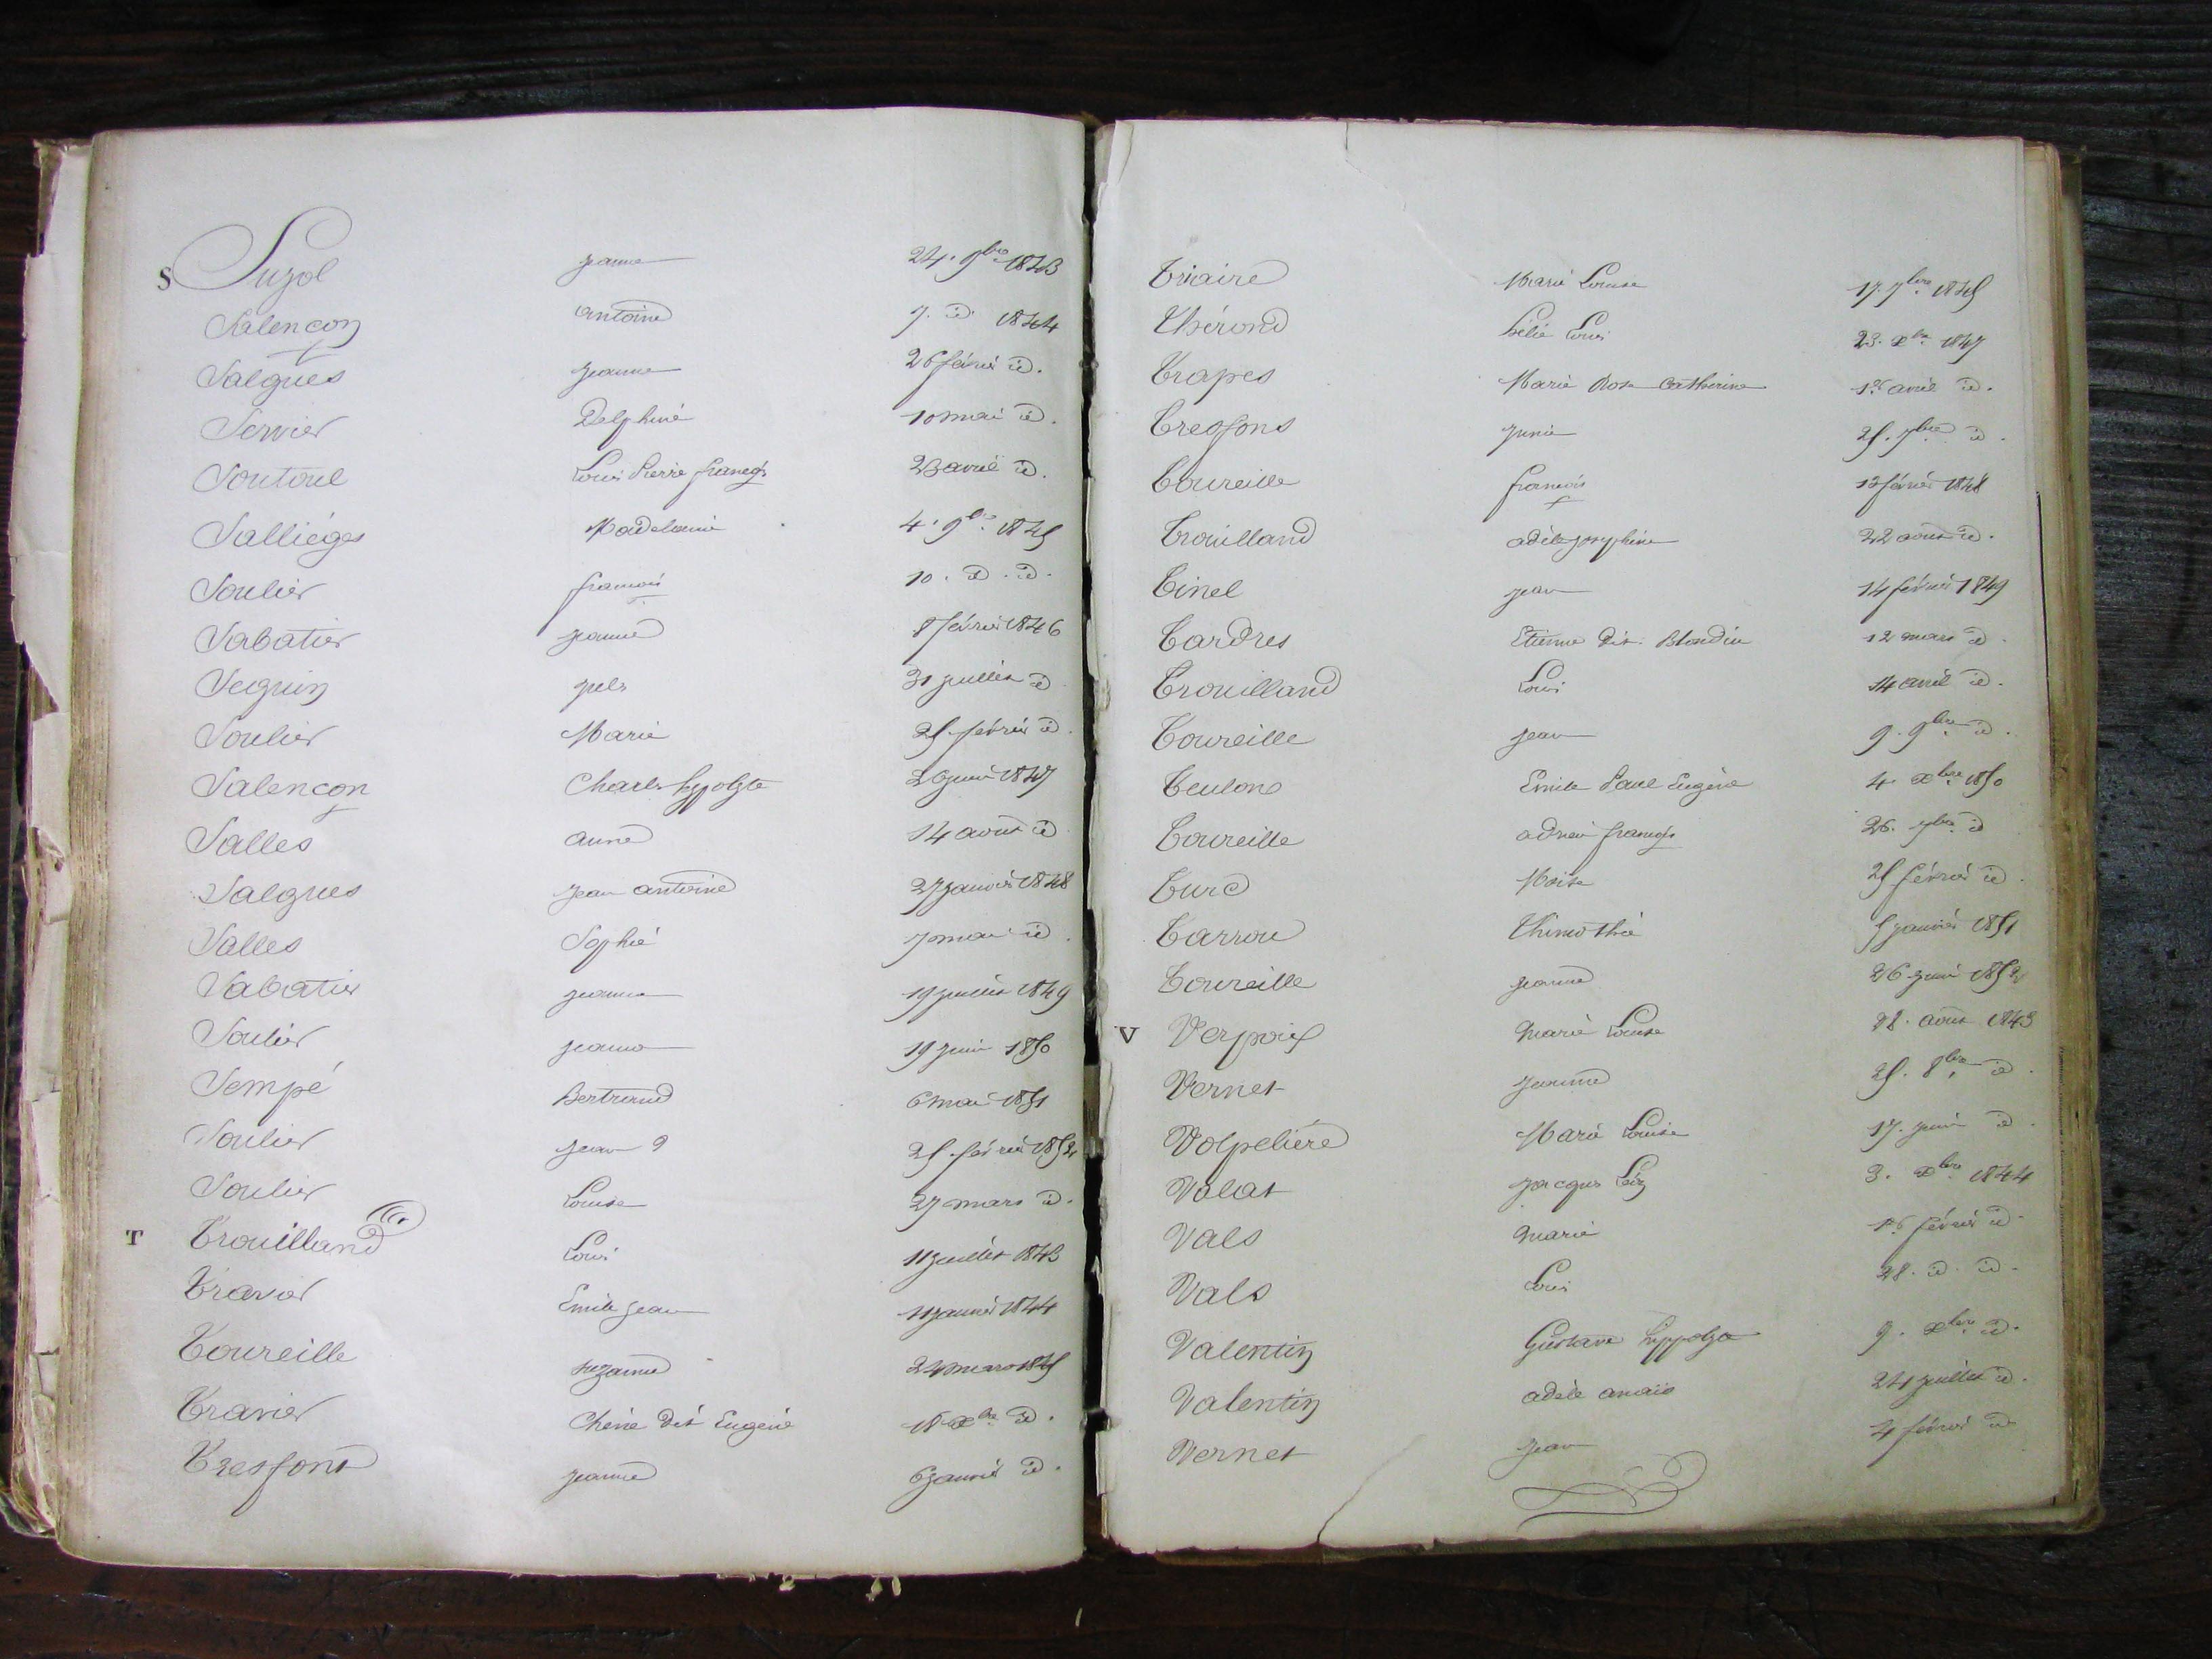 S Sugol jeanne 24. 9bre 1843
Salençon antoine 7. id. 1844
Salgues jeanne 26 février id.
Servier Delphine 10 mai id.
Soutoul Louis Pierre françois 23 avril id.
Salliéges Madelaine 4. 9bre 1845
Soulier françois 10. id. id.
Sabatier jeanne 8 février 1846
Seguin jules 31 juillet id
Soulier Marie 25 février id.
Salençon Charles hyppolyte 26 juin 1847
Salles anne 14 aout id
Salgues jean antoine 27 janvier 1848
Salles Sophie 7 mai id.
Sabatier jeanne 19 juillet 1849
Soulier jeanne 19 juin 1850
Sempé Bertrand 6 mai 1851
Soulier jean 25. février 1852
Soulier Louise 27 mars id.
T Trouilland Louis 11 juillet 1843
Travier Emile jean 11 janvier 1844
Toureille suzanne 24 mars 1845
Travier Chérie dit Eugénie 18 xbre id.
Tresfont jeanne 6 janvier id.
Triaire Marie Louise 17. 7bre 1845
Thérond hélie Louis 23. xbre 1847
Trapes Marie Rose Catherine 1er avril id.
Tresfons junie 25. 7bre id.
Toureille françois 12 février 1848
Trouilland adèle josephine 22 aout id.
Tinel jean 14 février 1849
Tardres Etienne dit: Blondin 12 mars id.
Trouilland Louis 14 avril id.
Toureille jean 9. 9bre id.
Teulon Emile Paul Eugène 4 xbre 1850
Toureille adrien françois 26. 7bre id
Turc Moïse 25 février id.
Tarrou Thimothée 5 janvier 1851
Toureille jeanne 26 juin 1852
V Verpoix Marie Louise 28. aout 1843
Vernet jeanne 25. 8bre id.
Volpelière Marie Louise 17. juin id.
Valat jacques 3. xbre 1844
Vals Marie 16 février id.
Vals Louis 28. id. id.
Valentin Gustave hyppolyte 9. xbre id.
Valentin adèle anaïs 24 juillet id.
Vernet jean 4 février id